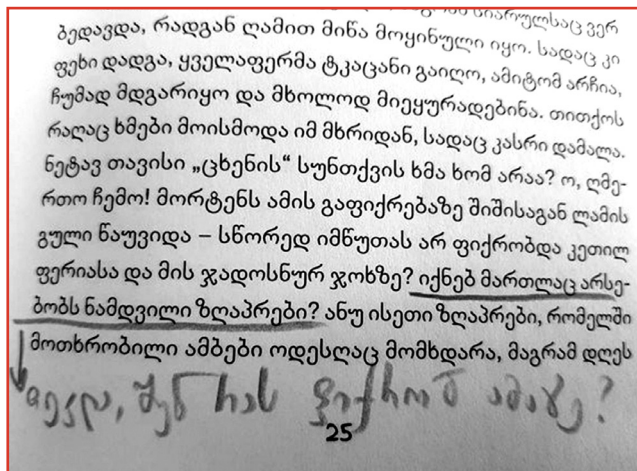 სიარულსაც ვერ
ბედავდა, რადგან ღამით მიწა მოყინული იყო. სადაც კი
ფეხი დადგა, ყველაფერმა ტკაცანი გაიღო, ამიტომ არჩია,
ჩუმად მდგარიყო და მხოლოდ მიეყურადებინა. თითქოს
რაღაც ხმები მოისმოდა იმ მხრიდან, სადაც კასრი დამალა.
ნეტავ თავისი „ცხენის“ სუნთქვის ხმა ხომ არაა? ო, ღმე-
რთო ჩემო! მორტენს ამის გაფიქრებაზე შიშისაგან ლამის
გული წაუვიდა – სწორედ იმწუთას არ ფიქრობდა კეთილ
ფერიასა და მის ჯადოსნურ ჯოხზე? იქნებ მართლაც არსე-
ბობს ნამდვილი ზღაპრები? ანუ ისეთი ზღაპრები, რომელში
მოთხრობილი ამბები ოდესღაც მომხდარა, მაგრამ დღეს
შენ რას ფიქრობ ამაზე?
25